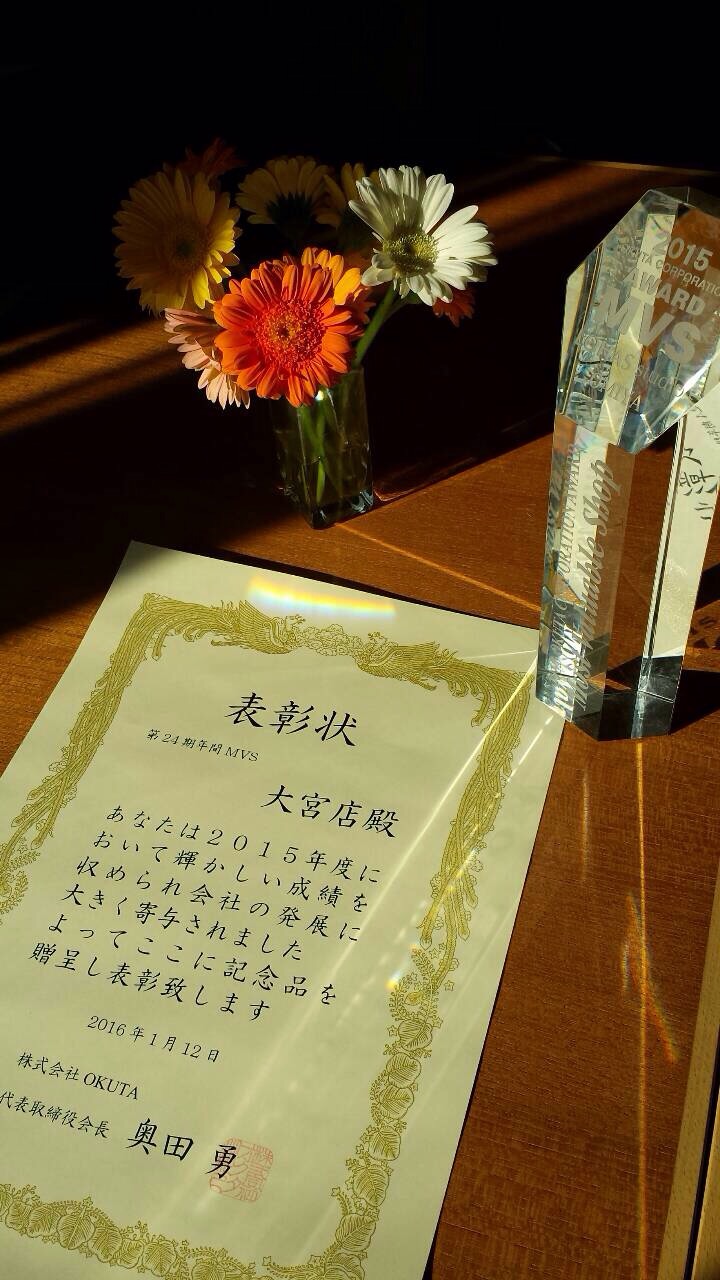 2015
CORPORATION
AWARD
MVS
表彰状
第24期年間MVS
大宮店殿
あなたは2015年度に
おいて輝かしい成績を
収められ会社の発展に
大きく寄与されました
よってここに記念品を
贈呈し表彰致します
2016年1月12日
株式会社OKUTA
代表取締役会長 奥田 勇